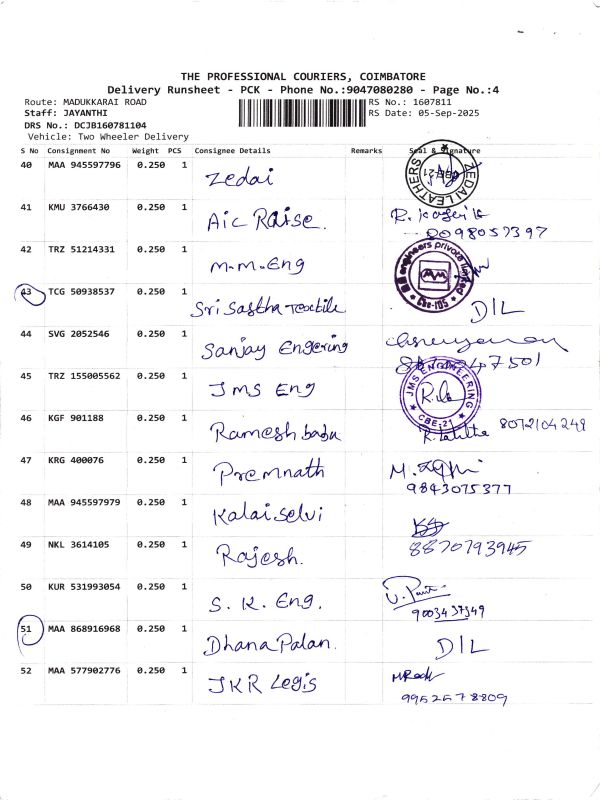 THE PROFESSIONAL COURIERS, COIMBATORE
Delivery Runsheet - PCK - Phone No.:9047080280 - Page No.:4
Route: MADUKKARAI ROAD RS No.: 1607811
Staff: JAYANTHI RS Date: 05-Sep-2025
DRS No.: DCJB160781104
Vehicle: Two Wheeler Delivery
S No Consignment No Weight PCS Consignee Details Remarks Seal & Signature
40 MAA 945597796 0.250 1 Zedai ZEDAI LEATHERS CBE-21
41 KMU 3766430 0.250 1 Aic Raise.
8098057397
42 TRZ 51214331 0.250 1 M.M.Eng engineers private limited Cbe-105
43 TCG 50938537 0.250 1 Sri Sastha Textile D/L
44 SVG 2052546 0.250 1 Sanjay Engering
45 TRZ 155005562 0.250 1 JMS Eng JMS ENGINEERING CBE-21
46 KGF 901188 0.250 1 Ramesh babu R. Lalitha 8072104249
47 KRG 400076 0.250 1 Premnath
9843075377
48 MAA 945597979 0.250 1 Kalai selvi
49 NKL 3614105 0.250 1 Rajesh. 8870793945
50 KUR 531993054 0.250 1 S. K. Eng.
9003437349
51 MAA 868916968 0.250 1 Dhana Palan. D/L
52 MAA 577902776 0.250 1 JKR Legis
9952678809